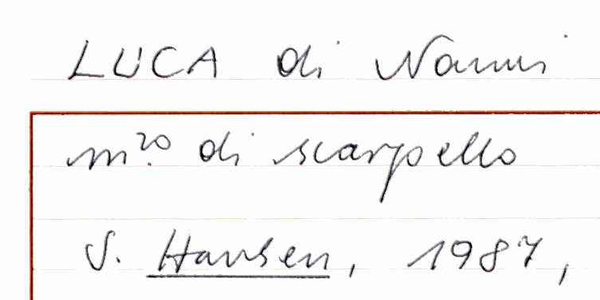 LUCA di Nanni
m.ro di scarpello
S. Hansen, 1987,